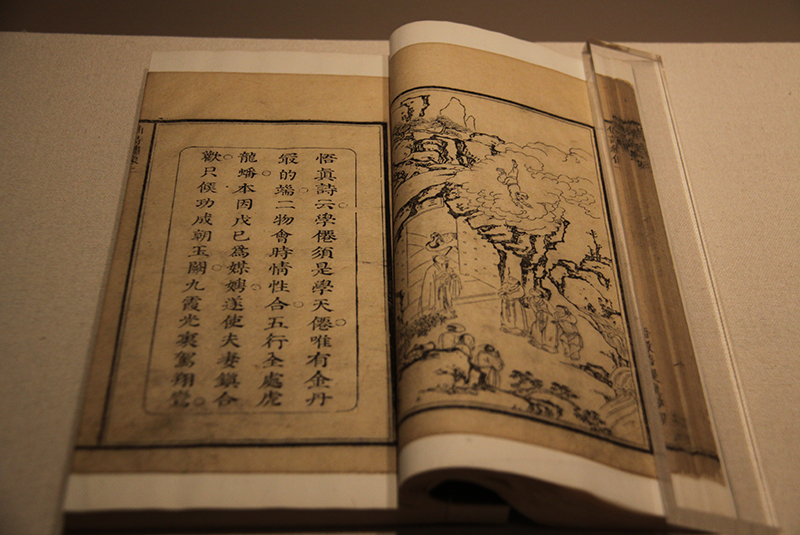 悟眞詩云學僊須是學天僊唯有金丹
㝡的端二物會時情性合五行全處虎
龍蟠本因戊己為媒娉遂使夫妻鎮合
歡只候功成朝玉闕九霞光裏駕翔鸞